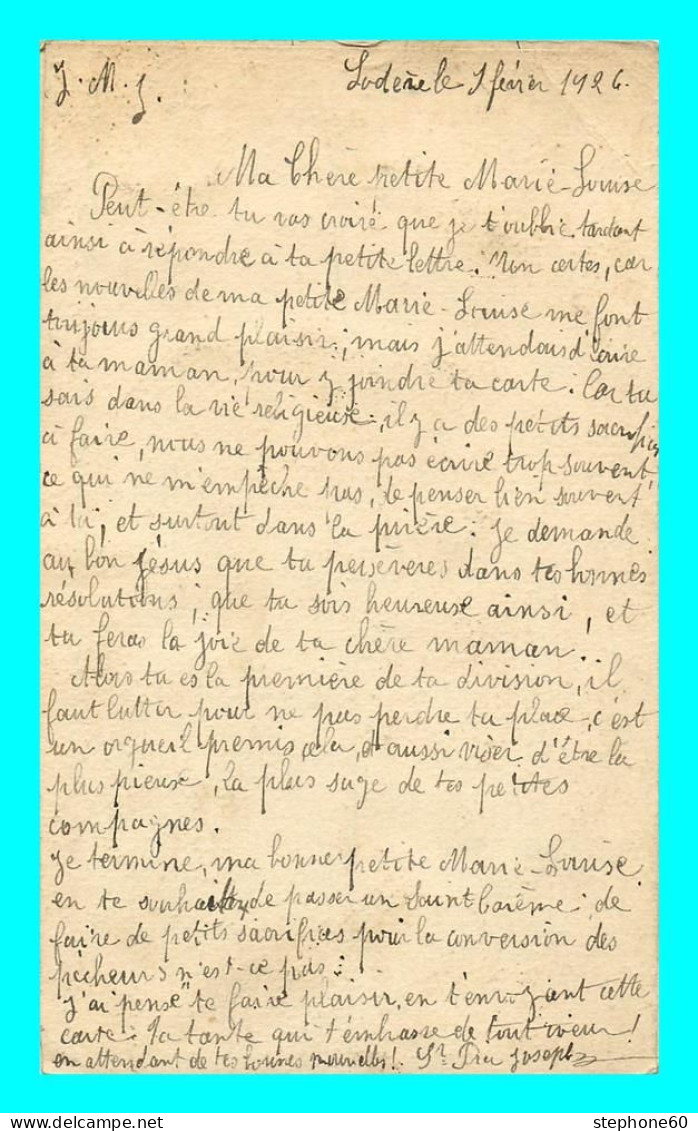 J. M. J. Lodève le 1 février 1926.
Ma Chère petite Marie-Louise
Peut-être tu vas croire que je t'oublie tardant
ainsi à répondre à ta petite lettre. Non certes, car
les nouvelles de ma petite Marie-Louise me font
toujours grand plaisir, mais j'attendais d'écrire
à ta maman, pour y joindre ta carte. Car tu
sais dans la vie religieuse, il y a des petits sacrifices
à faire, nous ne pouvons pas écrire trop souvent,
ce qui ne m'empêche pas, de penser bien souvent
à toi, et surtout dans la prière. Je demande
au bon Jésus que tu persévères dans tes bonnes
résolutions, que tu sois heureuse ainsi, et
tu feras la joie de ta chère maman.
Alors tu es la première de ta division, il
faut lutter pour ne pas perdre ta place, c'est
un orgueil premis cela, et aussi viser d'être la
plus pieuse, la plus sage de tes petites
compagnes.
Je termine, ma bonne petite Marie-Louise
en te souhaitant de passer un Saint Carême, de
faire de petits sacrifices pour la conversion des
pécheurs n'est-ce pas.
J'ai pensé te faire plaisir, en t'envoyant cette
carte. Ta tante qui t'embrasse de tout coeur!
en attendant de tes bonnes nouvelles! Sr Joseph
stephone60